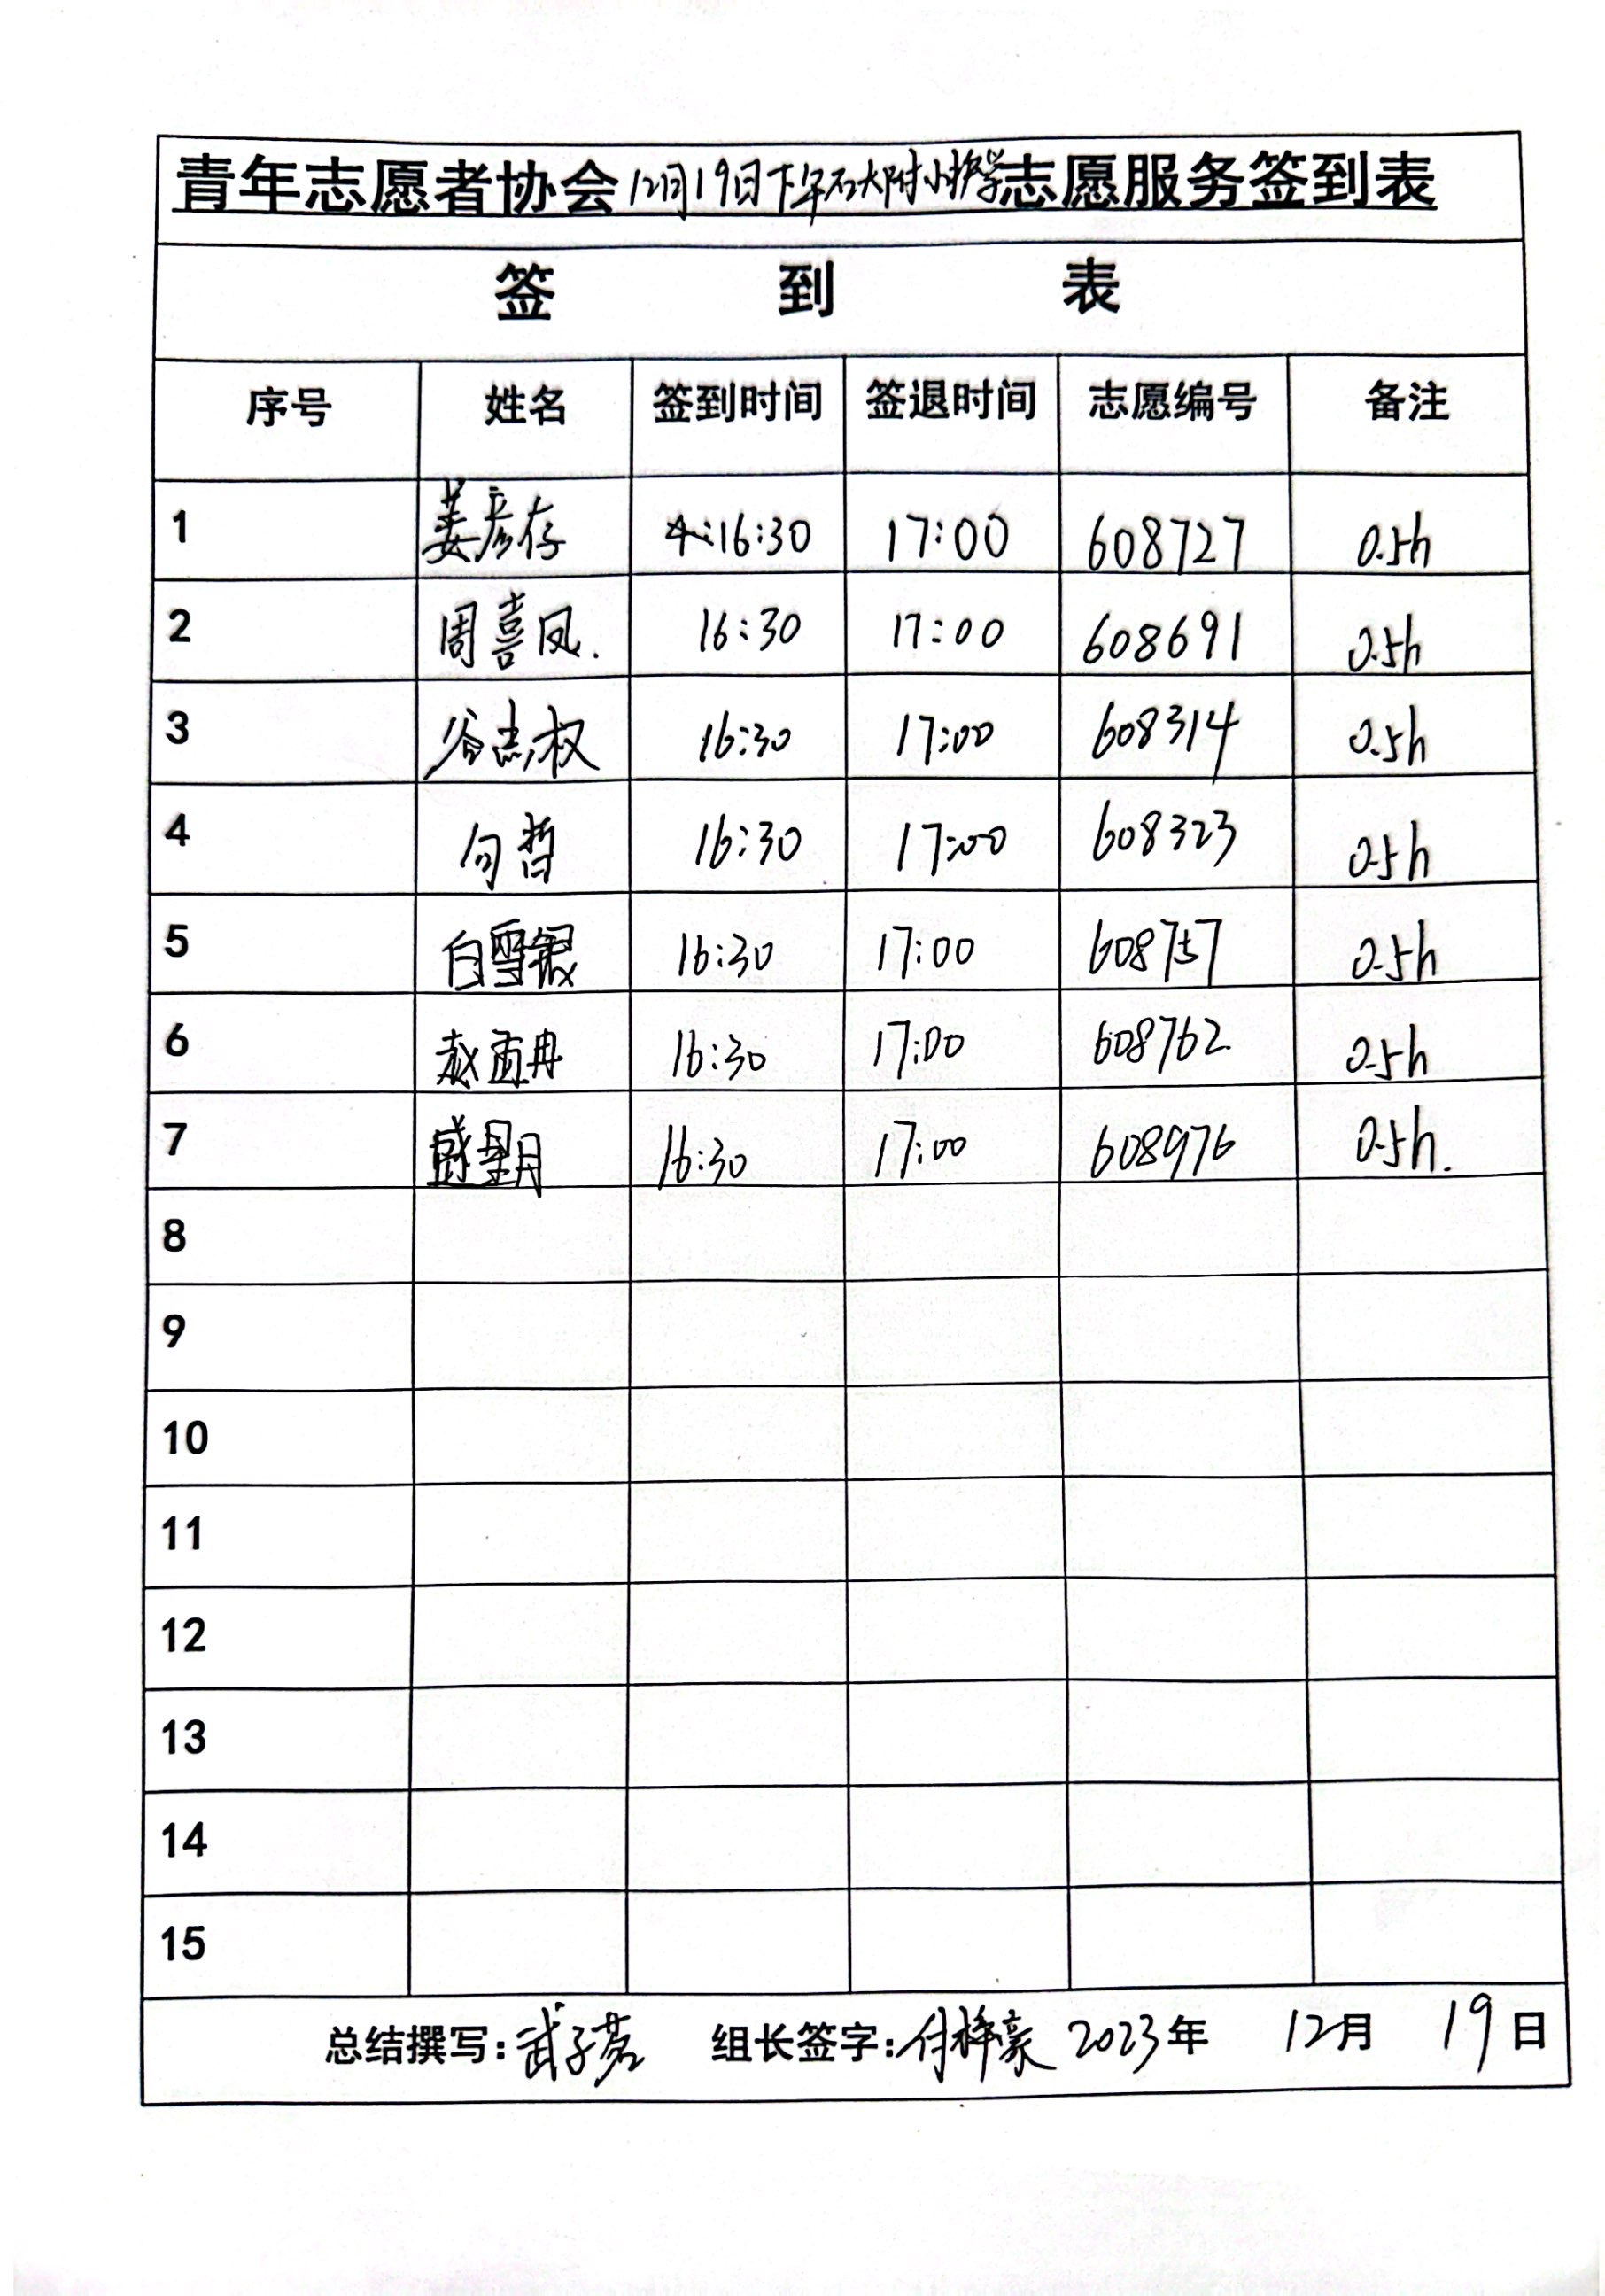 青年志愿者协会12月19日下午石大附小护学志愿服务签到表
签 到 表
序号 姓名 签到时间 签退时间 志愿编号 备注
1 姜彦存 16:30 17:00 608727 0.5h
2 周喜凤. 16:30 17:00 608691 0.5h
3 谷志权 16:30 17:00 608314 0.5h
4 勾哲 16:30 17:00 608323 0.5h
5 白雪银 16:30 17:00 608757 0.5h
6 赵冉 16:30 17:00 608762 0.5h
7 盛明 16:30 17:00 608976 0.5h.
8
9
10
11
12
13
14
15
总结撰写:武子茗 组长签字:付梓豪 2023年 12月 19日